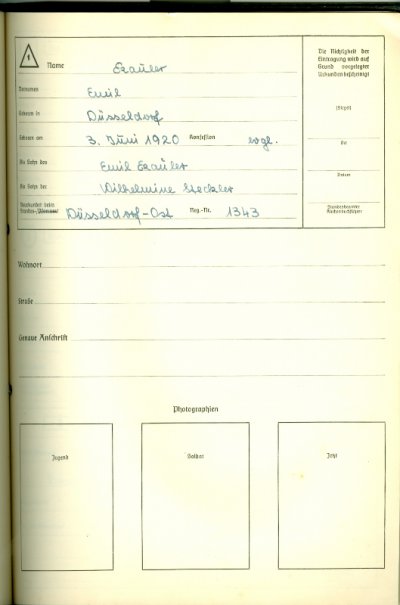 1
Name Ezauler
Vornamen Emil
Geboren in Düsseldorf
Geboren am 3. Juni 1920 Konfession evgl.
Als Sohn des Emil Ezauler
Als Sohn der Wilhelmine Steckler
Beurkundet beim
Standes- Düsseldorf-Ost Reg.-Nr. 1343
Die Richtigkeit der
Eintragung wird auf
Grund vorgelegter
Urkunden bescheinigt
Ort
Datum
Standesbeamter
Wohnort
Straße
Genaue Anschrift
Photographien
Jugend Soldat Jetzt